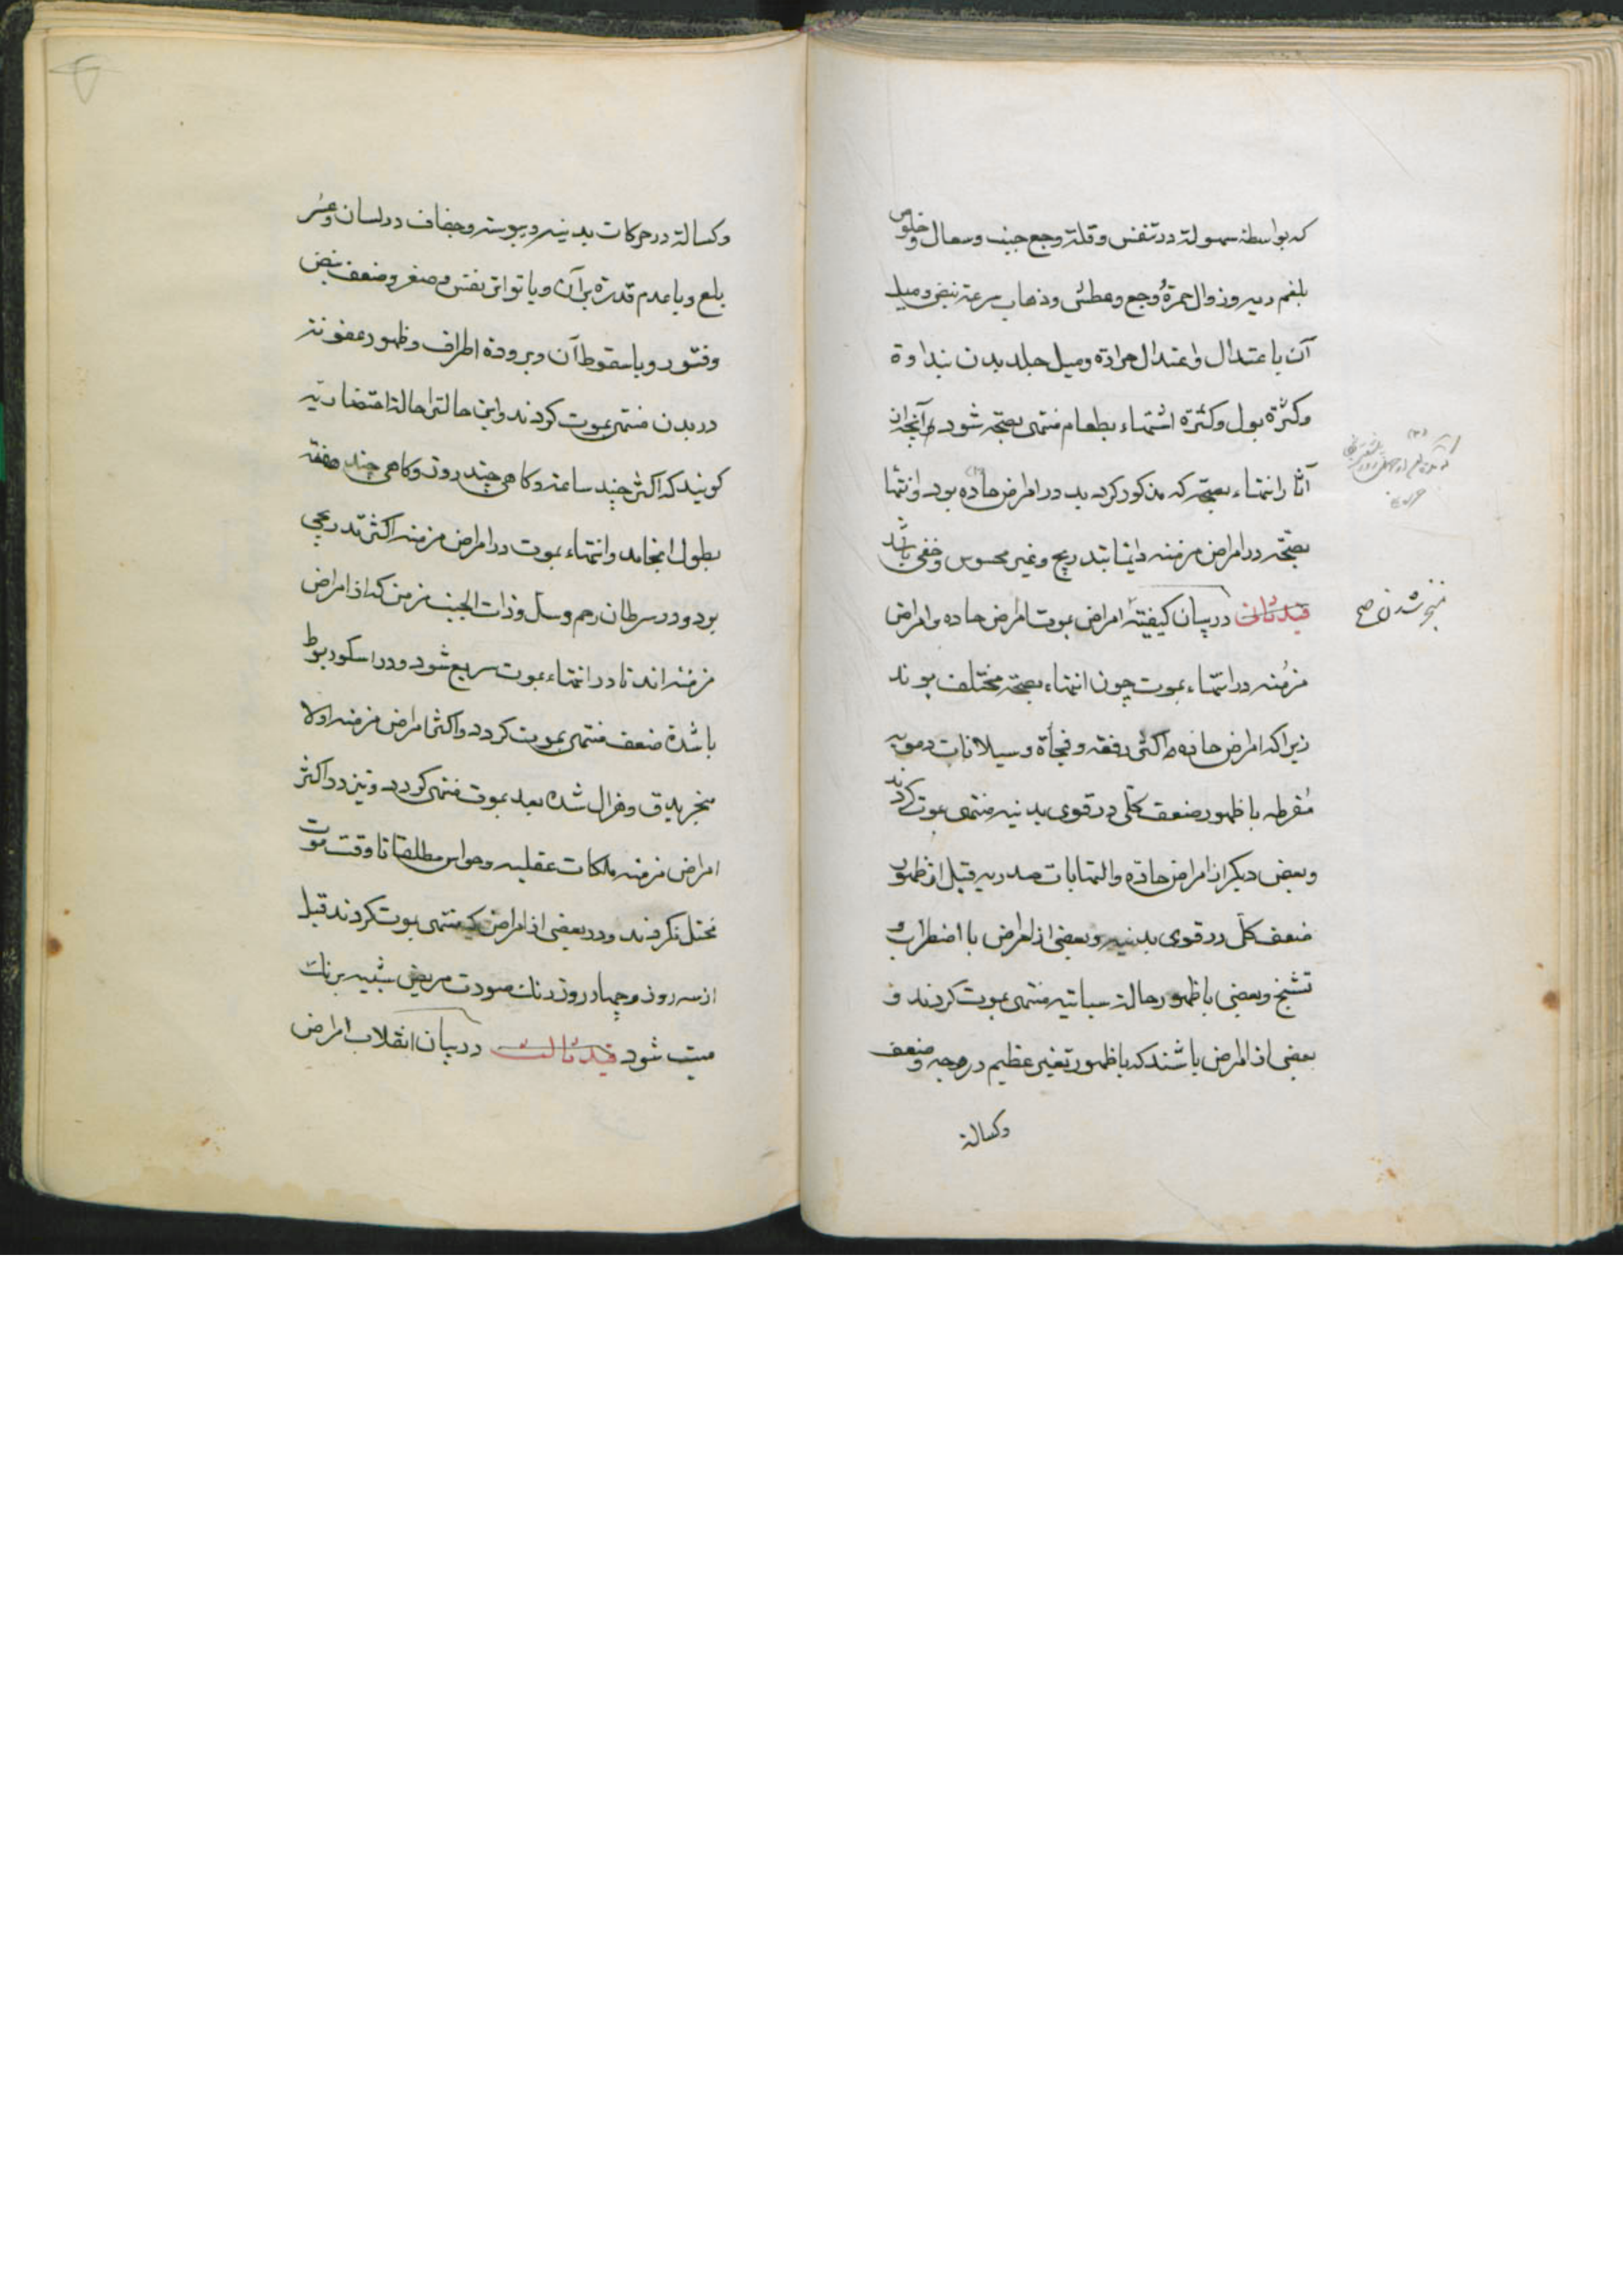 که بواسطه سهولة در تنفس و قلة وجع جنب و سعال و خلوص
بلغم دیه و زوال حمرة وجع و عطش و ذهاب سرعة نبض و میل
آن با عتدال و اعتدال حرارة و میل جلد بدن بنداوة
و کثرة بول و کثرة اشتهاء بطعام منتهی بصحة شود و آنچه از
آثار انتهاء بصحة که مذکور کردید در امراض حاده بود و انتها
بصحة در امراض مزمنه دایما بتدریج و غیر محسوس و خفی باشد
قید ثانی در بیان کیفیة امراض بموت امراض حاده و امراض
مزمنه در انتهاء بموت چون انتهاء بصحة مختلف بوند
زیرا که امراض حاده اکثر دفعة و فجأة و سیلانات دمویه
مفرطه با ظهور ضعف کلی در قوی بدنیه منتهی بموت کردند
و بعض دیکر از امراض حاده و التهابات صدریه قبل از ظهور
ضعف کل در قوی بدنیه و بعضی از امراض با اضطراب و
تشنج و بعضی با ظهور حالة سباتیه منتهی بموت کردند و
بعضی از امراض باشند که با ظهور تغیر عظیم در وجه و ضعف
و کسالة
منجر شدن صح
و کسالة در حرکات بدنیه و یبوسة و جفاف در لسان و عسر
بلع و یا عدم قدرة بر آن و با تواتر نفس و صغر و ضعف نبض
و فتور و یا سقوط آن و برودة اطراف و ظهور عفونة
در بدن منتهی بموت کردند و این حالت را حالة احتضاریه
کویند که اکثر چند ساعة و کاهی چند روز و کاهی چند هفته
بطول انجامد و انتهاء بموت در امراض مزمنه اکثر تدریجی
بود و در سرطان رحم و سل و ذات الجنب مزمن که از امراض
مزمنه اند نادر انتهاء بموت سریع شود و در اسکوربوط
با شدة ضعف منتهی بموت کردد و اکثر امراض مزمنه اولا
منجر بدق و هزال شده بعد بموت منتهی کردد و نیز در اکثر
امراض مزمنه ملکات عقلیه و حواس مطلقا تا وقت موت
مختل نکردند و در بعضی از امراض که منتهی بموت کردند قبل
از سه روز و چهار روز رنك صورت مریض شبیه برنك
میت شود قید ثالث در بیان انقلاب امراض